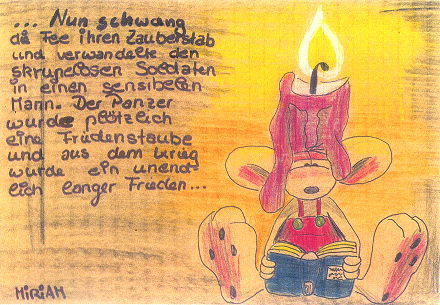 ... Nun schwang
di Fee ihren Zauberstab
und verwandelte den
skrupellosen Soldaten
in einen sensibelen
Mann. Der Panzer
wurde plötzlich
eine Friedenstaube
und aus dem Krieg
wurde ein unend-
lich langer Frieden...
MiRiAM